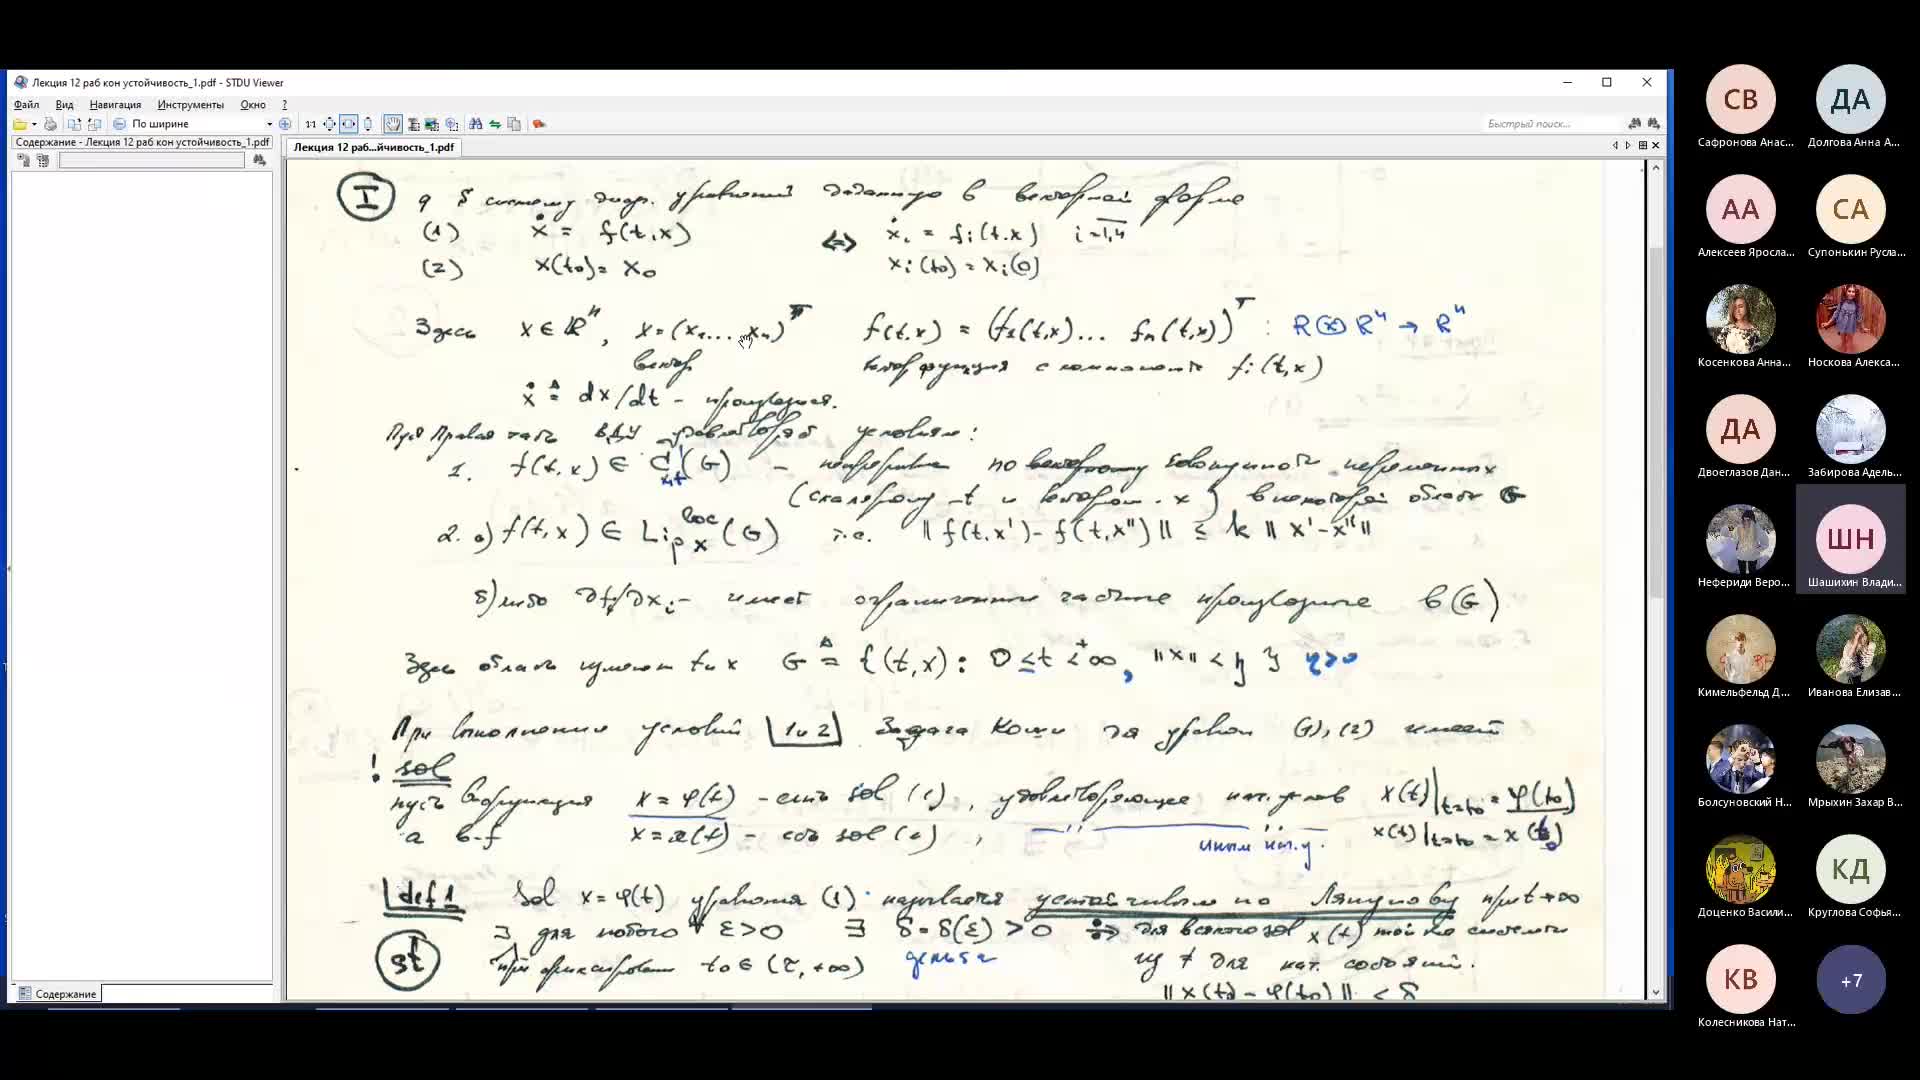 Лекция 12 раб кон устойчивость_1.pdf - STDU Viewer
Файл Вид Навигация Инструменты Окно ?
По ширине
1:1
Быстрый поиск...
Содержание - Лекция 12 раб кон устойчивость_1.pdf
Лекция 12 раб...йчивость_1.pdf
I систему дифр. уравнений заданную в векторной форме
(1) ẋ = f(t,x) <=> ẋᵢ = fᵢ(t.x)
(2) x(t₀) = x₀ xᵢ(t₀) = xᵢ(0)
Здесь x ∈ Rⁿ, x = (x₁...xₙ)ᵀ f(t,x) = (f₁(t,x)... fₙ(t,x))ᵀ : R ⊗ Rⁿ → Rⁿ
вектор вектор функция с компонент. fᵢ(t,x)
ẋ ≜ dx/dt - производная.
Пусть Правая часть ВДУ удовлетворяет условиям:
1. f(t,x) ∈ (G) - непрерывна по совокупности переменных
(скалярому - t и вектор. x) в некоторой области G
2. а) f(t,x) ∈ Lipₓˡᵒᶜ(G) т.е. ‖f(t.x') - f(t,x'')‖ ≤ k ‖x' - x''‖
б) либо ∂f/∂xᵢ - имеет ограниченные частные производные в (G)
Здесь область t и x G ≜ {(t,x): 0 ≤ t < +∞, ‖x‖ < η} η>0
При выполнении условий 1 и 2 Задача Коши для уравнен (1), (2) имеет
! sol
пусть x = φ(t) - есть sol (1), удовлетворяющее нач. услов x(t)|t=t₀ = φ(t₀)
а в-f x = x(t) - есть sol (1), иным нач. у. x(t)|t=t₀ = x(t₀)
def 1 Sol x = φ(t) уравнения (1) называется устойчивым по Ляпунову при t→∞
для любого ε>0 ∃ δ = δ(ε) > 0 для всякого sol x(t) той же системы
st при фиксирован t₀ ∈ (τ, +∞) дельта для нач. состояний.
‖x(t₀) - φ(t₀)‖ < δ
Содержание
СВ
Сафронова Анас...
ДА
Долгова Анна А...
АА
Алексеев Яросла...
СА
Супонькин Русла...
Косенкова Анна...
Носкова Алекса...
ДА
Двоеглазов Дан...
Забирова Адель...
Нефериди Веро...
ШН
Шашихин Влади...
Кимельфельд Д...
Иванова Елизав...
Болсуновский Н...
Мрыхин Захар В...
Доценко Васили...
КД
Круглова Софья...
КВ
Колесникова Нат...
+7